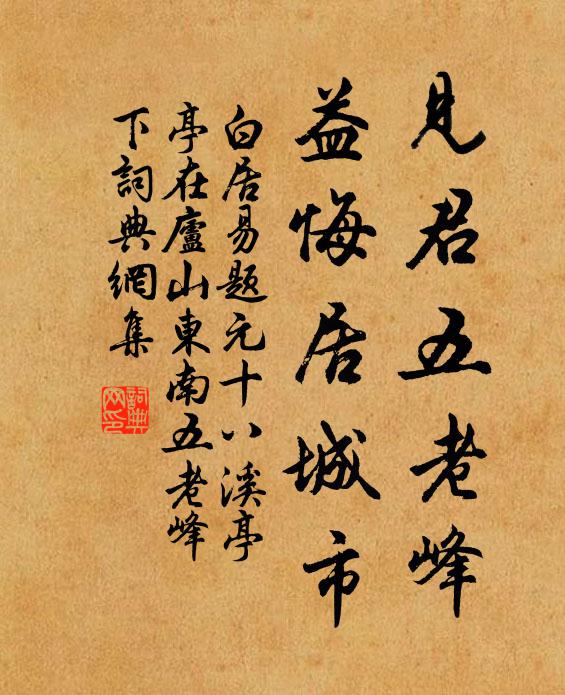 見君五老峰
益悔居城市
白居易題元十八溪亭
亭在廬山東南五老峰
下詞典網集
詞典
网印